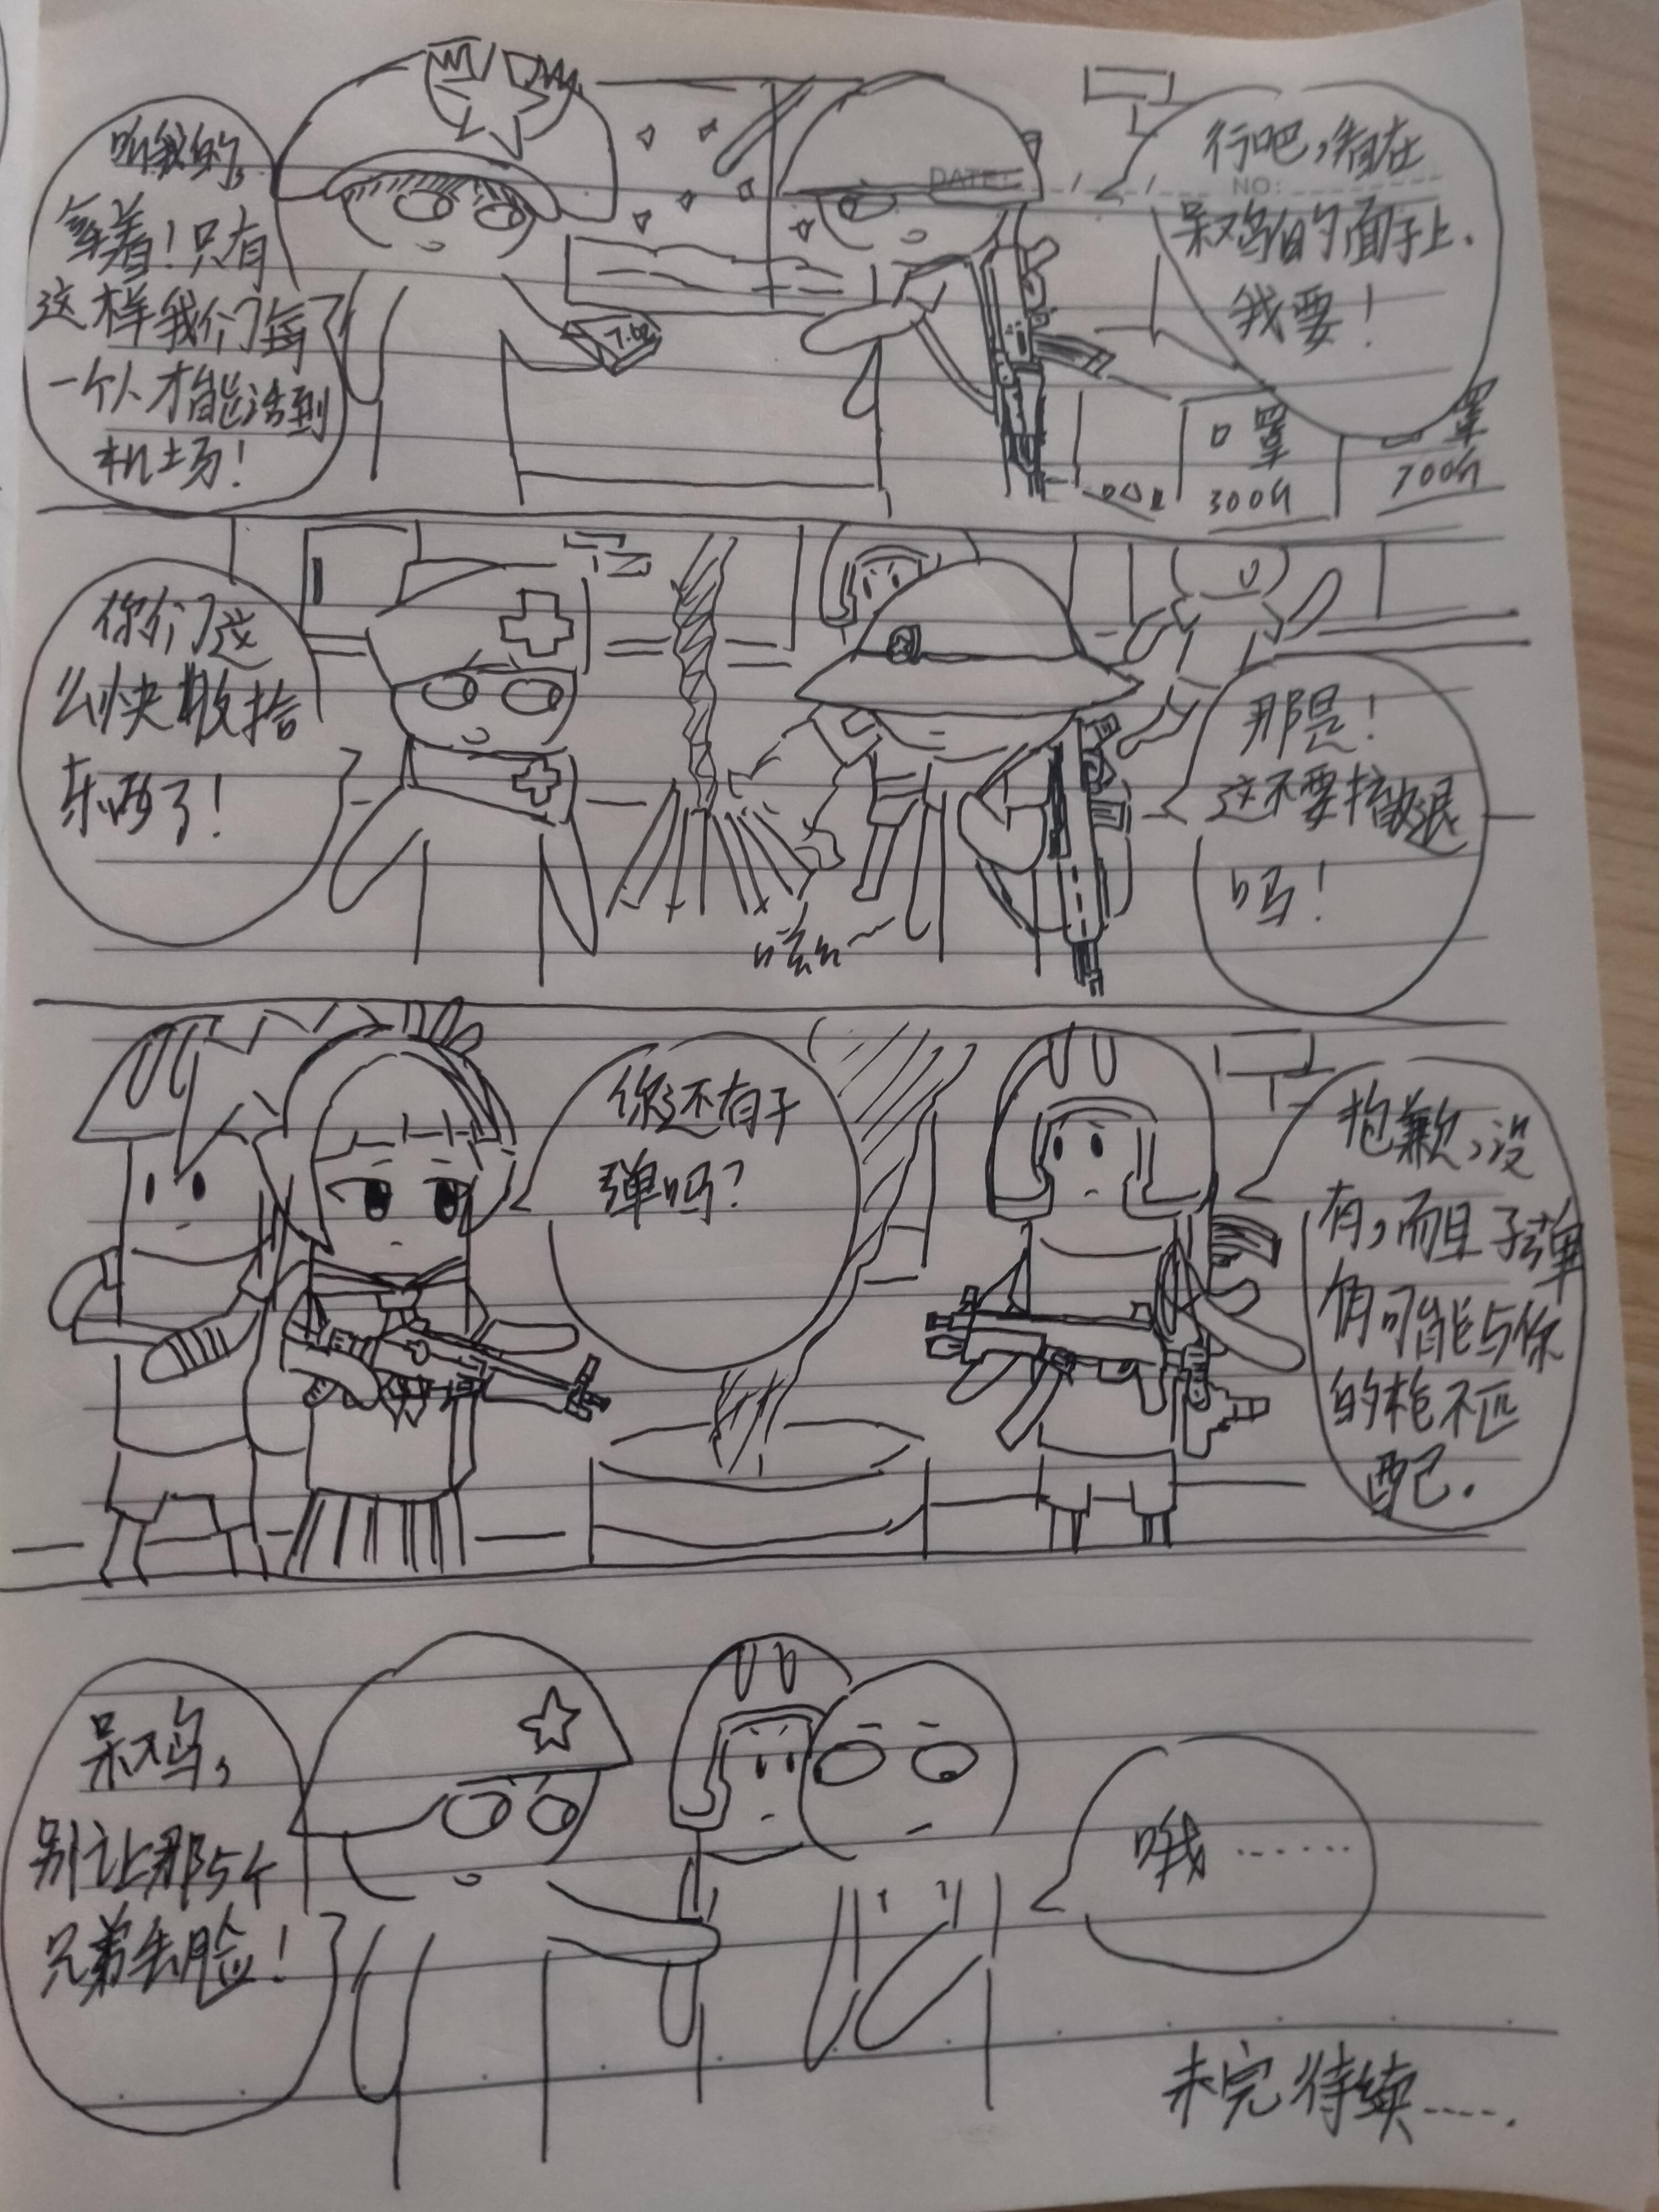 听我的,
拿着!只有
这样我们每
一个人才能活到
机场!
7.62
DATE:
NO:
行吧,看在
呆鸡的面子上.
我要!
口罩
300个
口罩
700个
你们这
么快收拾
东西了!
那是!
这不要撤退
吗!
你还有子
弹吗?
抱歉,没
有,而且子弹
有可能与你
的枪不匹
配.
呆鸡,
别让那5个
兄弟丢脸!
哦……
未完待续…….